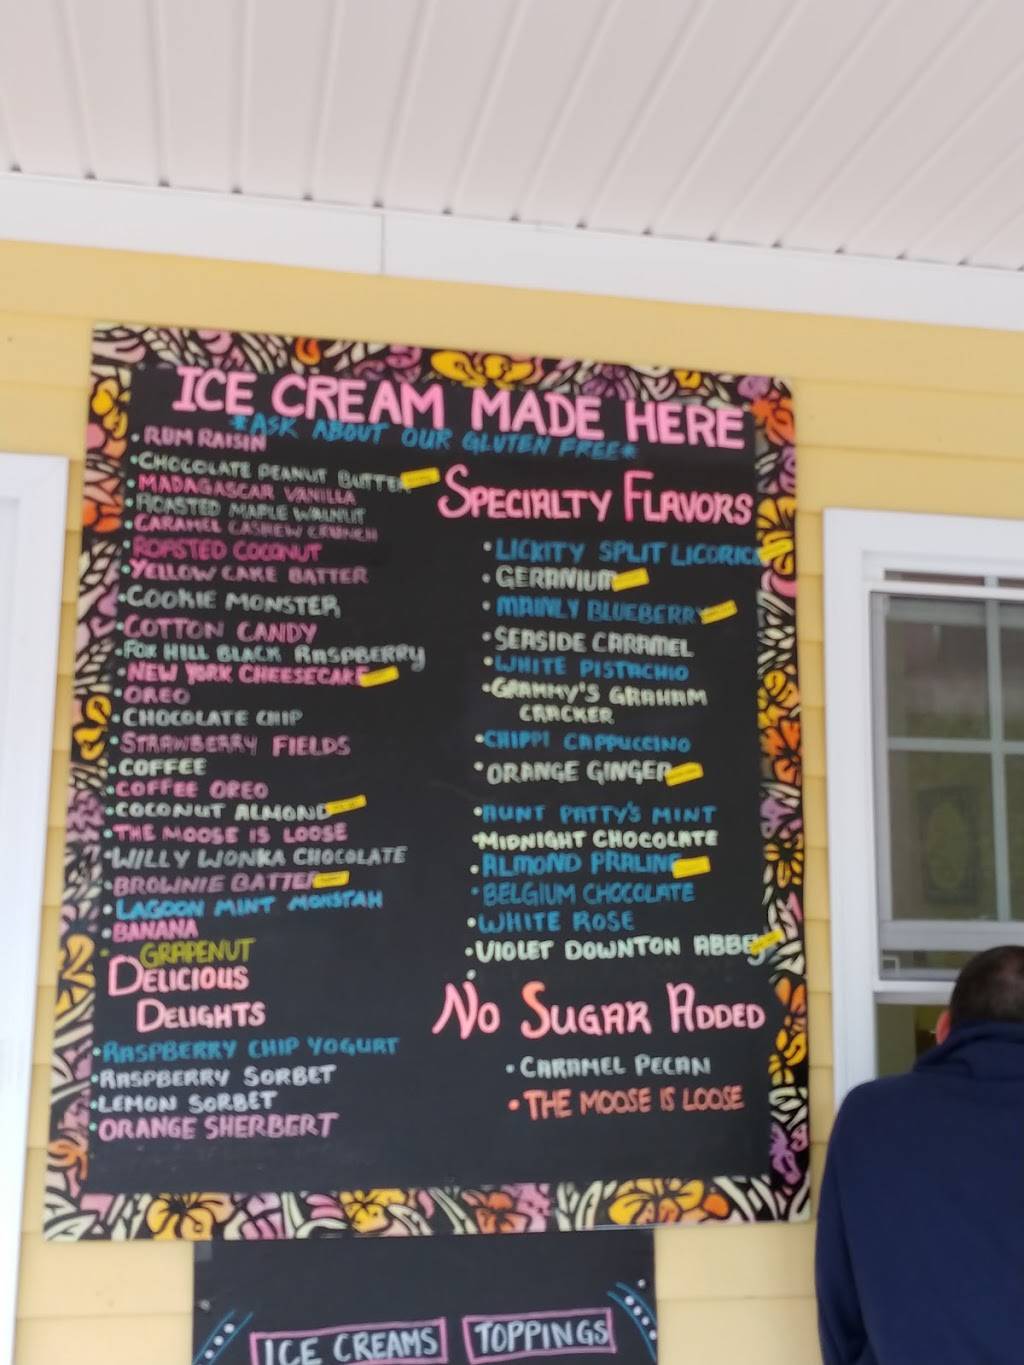 ICE CREAM MADE HERE
*ASK ABOUT OUR GLUTEN FREE*
• RUM RAISIN
• CHOCOLATE PEANUT BUTTER
• MADAGASCAR VANILLA
• ROASTED MAPLE WALNUT
• CARAMEL CASHEW CRUNCH
• ROASTED COCONUT
• YELLOW CAKE BATTER
• COOKIE MONSTER
• COTTON CANDY
• FOX HILL BLACK RASPBERRY
• NEW YORK CHEESECAKE
• OREO
• CHOCOLATE CHIP
• STRAWBERRY FIELDS
• COFFEE
• COFFEE OREO
• COCONUT ALMOND
• THE MOOSE IS LOOSE
• WILLY WONKA CHOCOLATE
• BROWNIE BATTER
• LAGOON MINT MONSTAH
• BANANA
• GRAPENUT
DELICIOUS
DELIGHTS
• RASPBERRY CHIP YOGURT
• RASPBERRY SORBET
• LEMON SORBET
• ORANGE SHERBERT
SPECIALTY FLAVORS
• LICKITY SPLIT LICORICE
• GERANIUM
• MAINLY BLUEBERRY
• SEASIDE CARAMEL
• WHITE PISTACHIO
• GRAMMY'S GRAHAM
CRACKER
• CHIPPI CAPPUCCINO
• ORANGE GINGER
• AUNT PATTY'S MINT
• MIDNIGHT CHOCOLATE
• ALMOND PRALINE
• BELGIUM CHOCOLATE
• WHITE ROSE
• VIOLET DOWNTON ABBEY
•
NO SUGAR ADDED
• CARAMEL PECAN
• THE MOOSE IS LOOSE
ICE CREAMS TOPPINGS